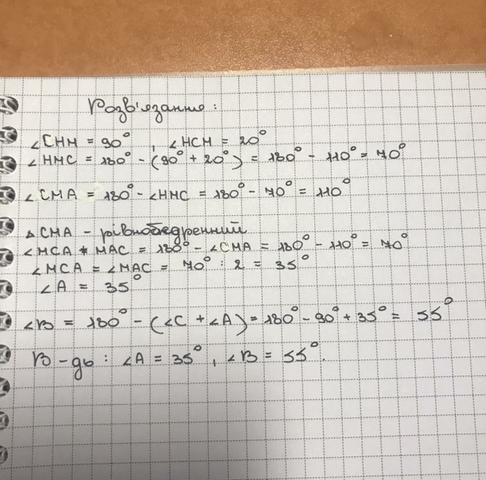 Розв'язання:
∠CHM = 90°, ∠HCM = 20°
∠HMC = 180° - (90° + 20°) = 180° - 110° = 70°
∠CMA = 180° - ∠HMC = 180° - 70° = 110°
△CMA - рівнобедренний
∠MCA + MAC = 180° - ∠CMA = 180° - 110° = 70°
∠MCA = ∠MAC = 70° : 2 = 35°
∠A = 35°
∠B = 180° - (∠C + ∠A) = 180° - 90° + 35° = 55°
В-дь: ∠A = 35°, ∠B = 55°.